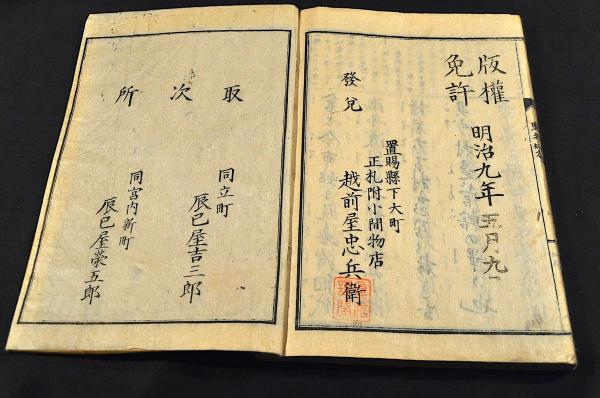 版權免許
明治九年五月九
發兌
置賜縣下大町
正札附小間物店
越前屋忠兵衛
取次所
同立町
辰巳屋吉三郎
同宮内新町
辰巳屋榮五郎